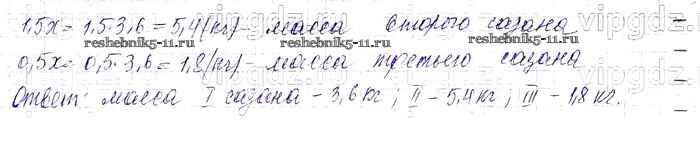 1,5x = 1,5·3,6 = 5,4 (кг) - масса второго сазана
0,5x = 0,5·3,6 = 1,8 (кг) - масса третьего сазана
Ответ: масса I сазана - 3,6 кг; II - 5,4 кг; III - 1,8 кг.
www.reshebnik5-11.ru
www.reshebnik5-11.ru
vipgdz.
vipgdz.